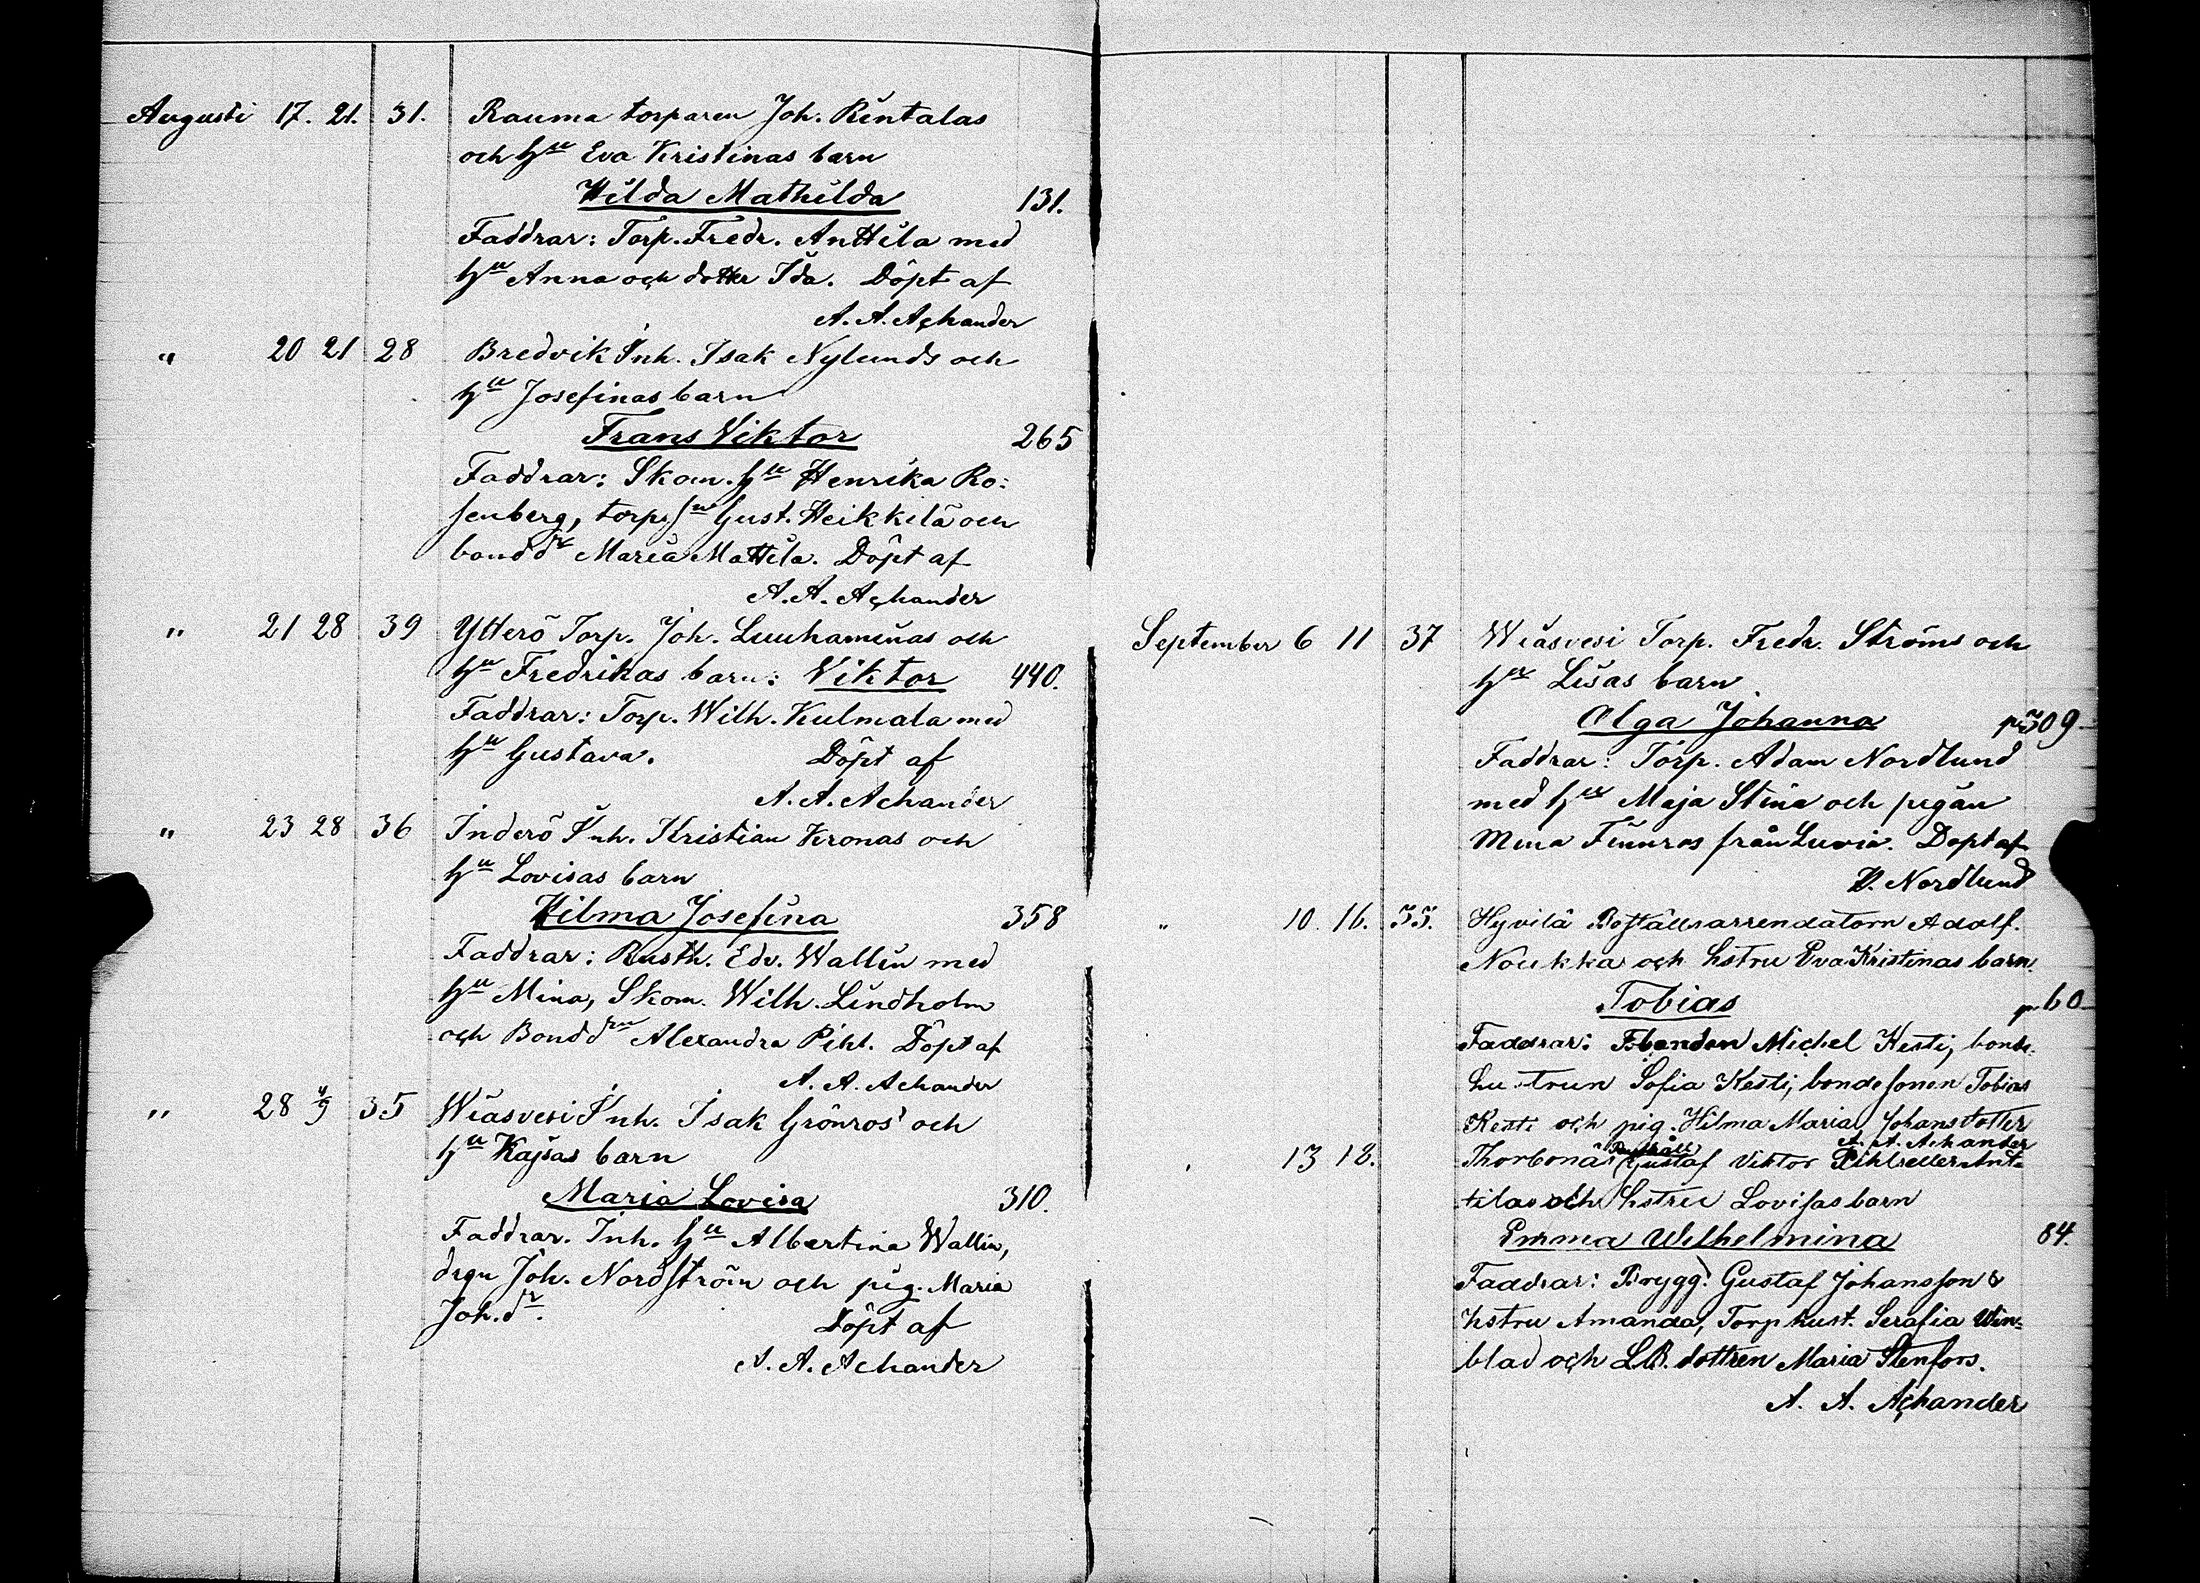 Augusti 17. 21. 31. Rauma torparen Joh. Rentalas
och hu Eva Kristinas barn
Hilda Mathilda 131.
Faddrar: Torp. Fredr. Anttila med
hu Anna och dotter Ida. Döpt af
A. A. Achander
" 20 21 28 Bredvik Inh. Isak Nylunds och
hu Josefinas barn
Frans Viktor 265
Faddrar: Skom. hu Henrika Ro:
senberg, torp. sn Gust. Heikkilä och
bondd Maria Mattila. Döpt af
A. A. Achander
" 21 28 39 Ytterö Torp. Joh. Luuhaminas och
hu Fredrikas barn: Viktor 440.
Faddrar: Torp. Wilh. Kulmala med
hu Gustava. Döpt af
A. A. Achander
" 23 28 36 Inderö Inh. Kristian Kronas och
hu Lovisas barn
Hilma Josefina 358
Faddrar: Rusth. Edv. Wallin med
hu Mina, Skom. Wilh. Lindholm
och Bondd Alexandra Pihl. Döpt af
A. A. Achander
" 28 4/9 35 Wiasvesi Inh. Isak Grönros' och
hu Kajsas barn
Maria Lovisa 310.
Faddrar. Inh. hu Albertina Wallin,
drgn Joh. Nordström och pig. Maria
Joh. dr. Döpt af
A. A. Achander
September 6 11 37 Wiasvesi Torp. Fredr. Ströms och
hu Lisas barn
Olga Johanna p. 309
Faddrar: Torp. Adam Nordlund
med hu Maja Stina och pigan
Mina Finnros från Luvia. Döpt af
K. Nordlund
" 10. 16. 35. Hyvilä Boställsarrendatorn Adolf.
Noukka och hstru Eva Kristinas barn.
Tobias p. 60
Faddrar: Bonden Michel Kesti, bonde-
hustrun Sofia Kesti, bondesonen Tobias
Kesti och pig. Hilma Maria Johansdotter
A. A. Achander
13 18. Thorbonäs Rusthåll. Gustaf Viktor Pihls eller Ant-
tilas och hstru Lovisas barn
Emma Wilhelmina 84.
Faddrar: Brygg. Gustaf Johansson &
hstru Amanda, Torp hust. Serafia Win-
blad och L.B. dottren Maria Stenfors.
A. A. Achander